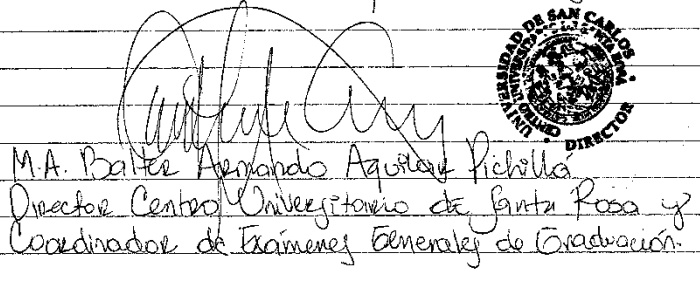 UNIVERSIDAD DE SAN CARLOS
CENTRO UNIVERSITARIO
DIRECTOR
M.A. Balter Armando Aguilar Pichillá
Director Centro Universitario de Santa Rosa y
Coordinador de Exámenes Generales de Graduación.